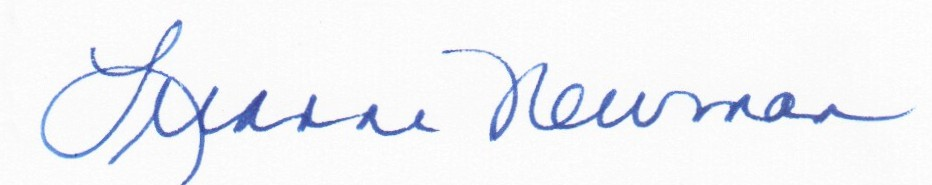 Lynnne Newman